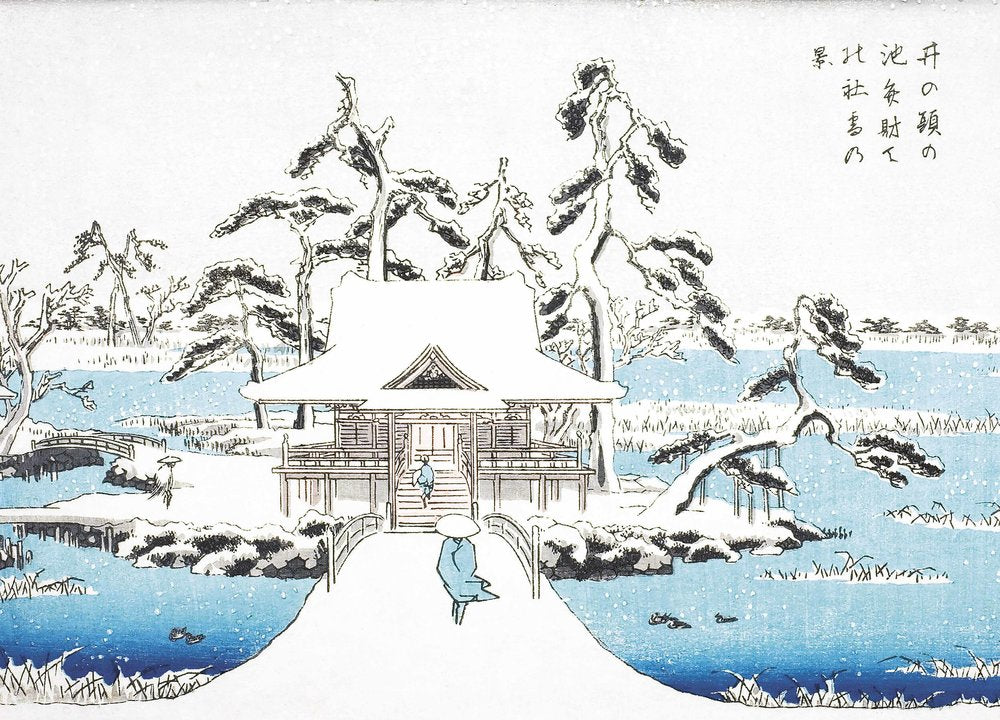 井の頭の
池弁財天
の社雪乃
景